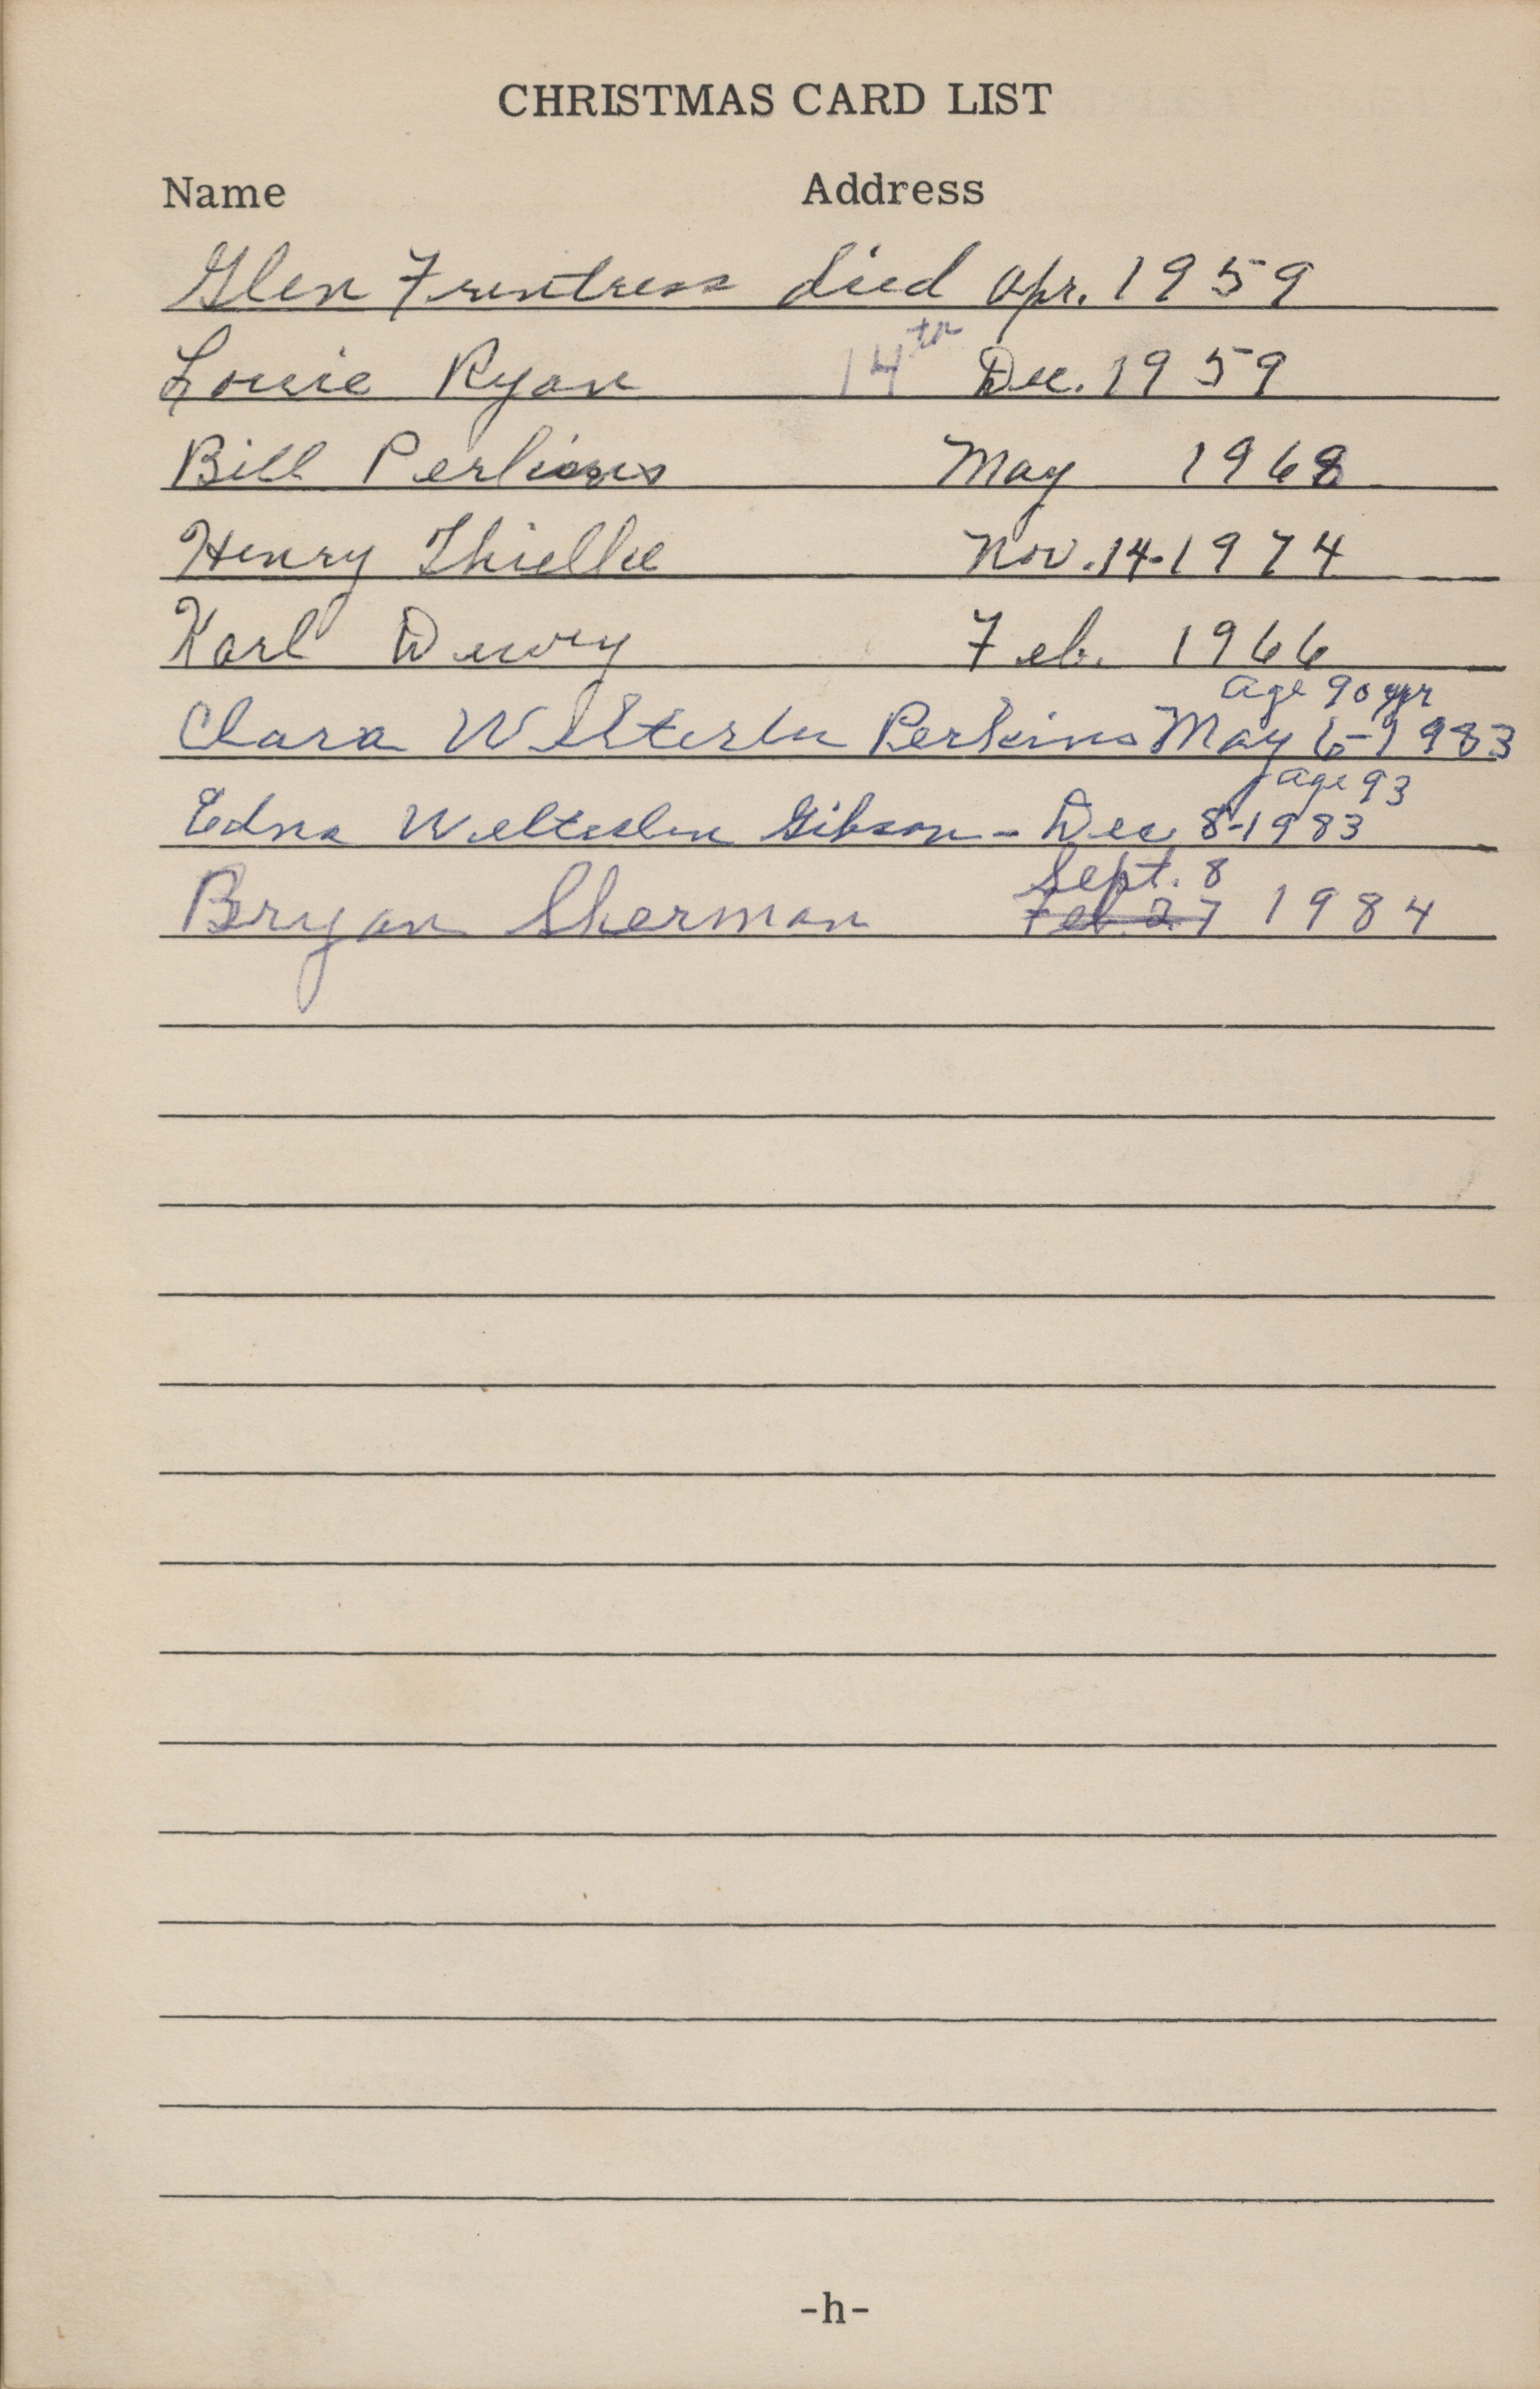 CHRISTMAS CARD LIST
Name Address
Glen Frentress died Apr. 1959
Louie Ryan 14th Dec. 1959
Bill Perkins May 1968
Henry Thielke Nov. 14-1974
Karl Dewey Feb. 1966
age 90 yr
Clara Perkins May 6-1983
age 93
Edna Gibson - Dec 8-1983
Sept. 8
Bryan Sherman Feb 27 1984
-h-